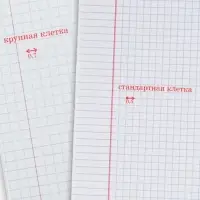 крупная клетка
0.7
стандартная клетка
0.5